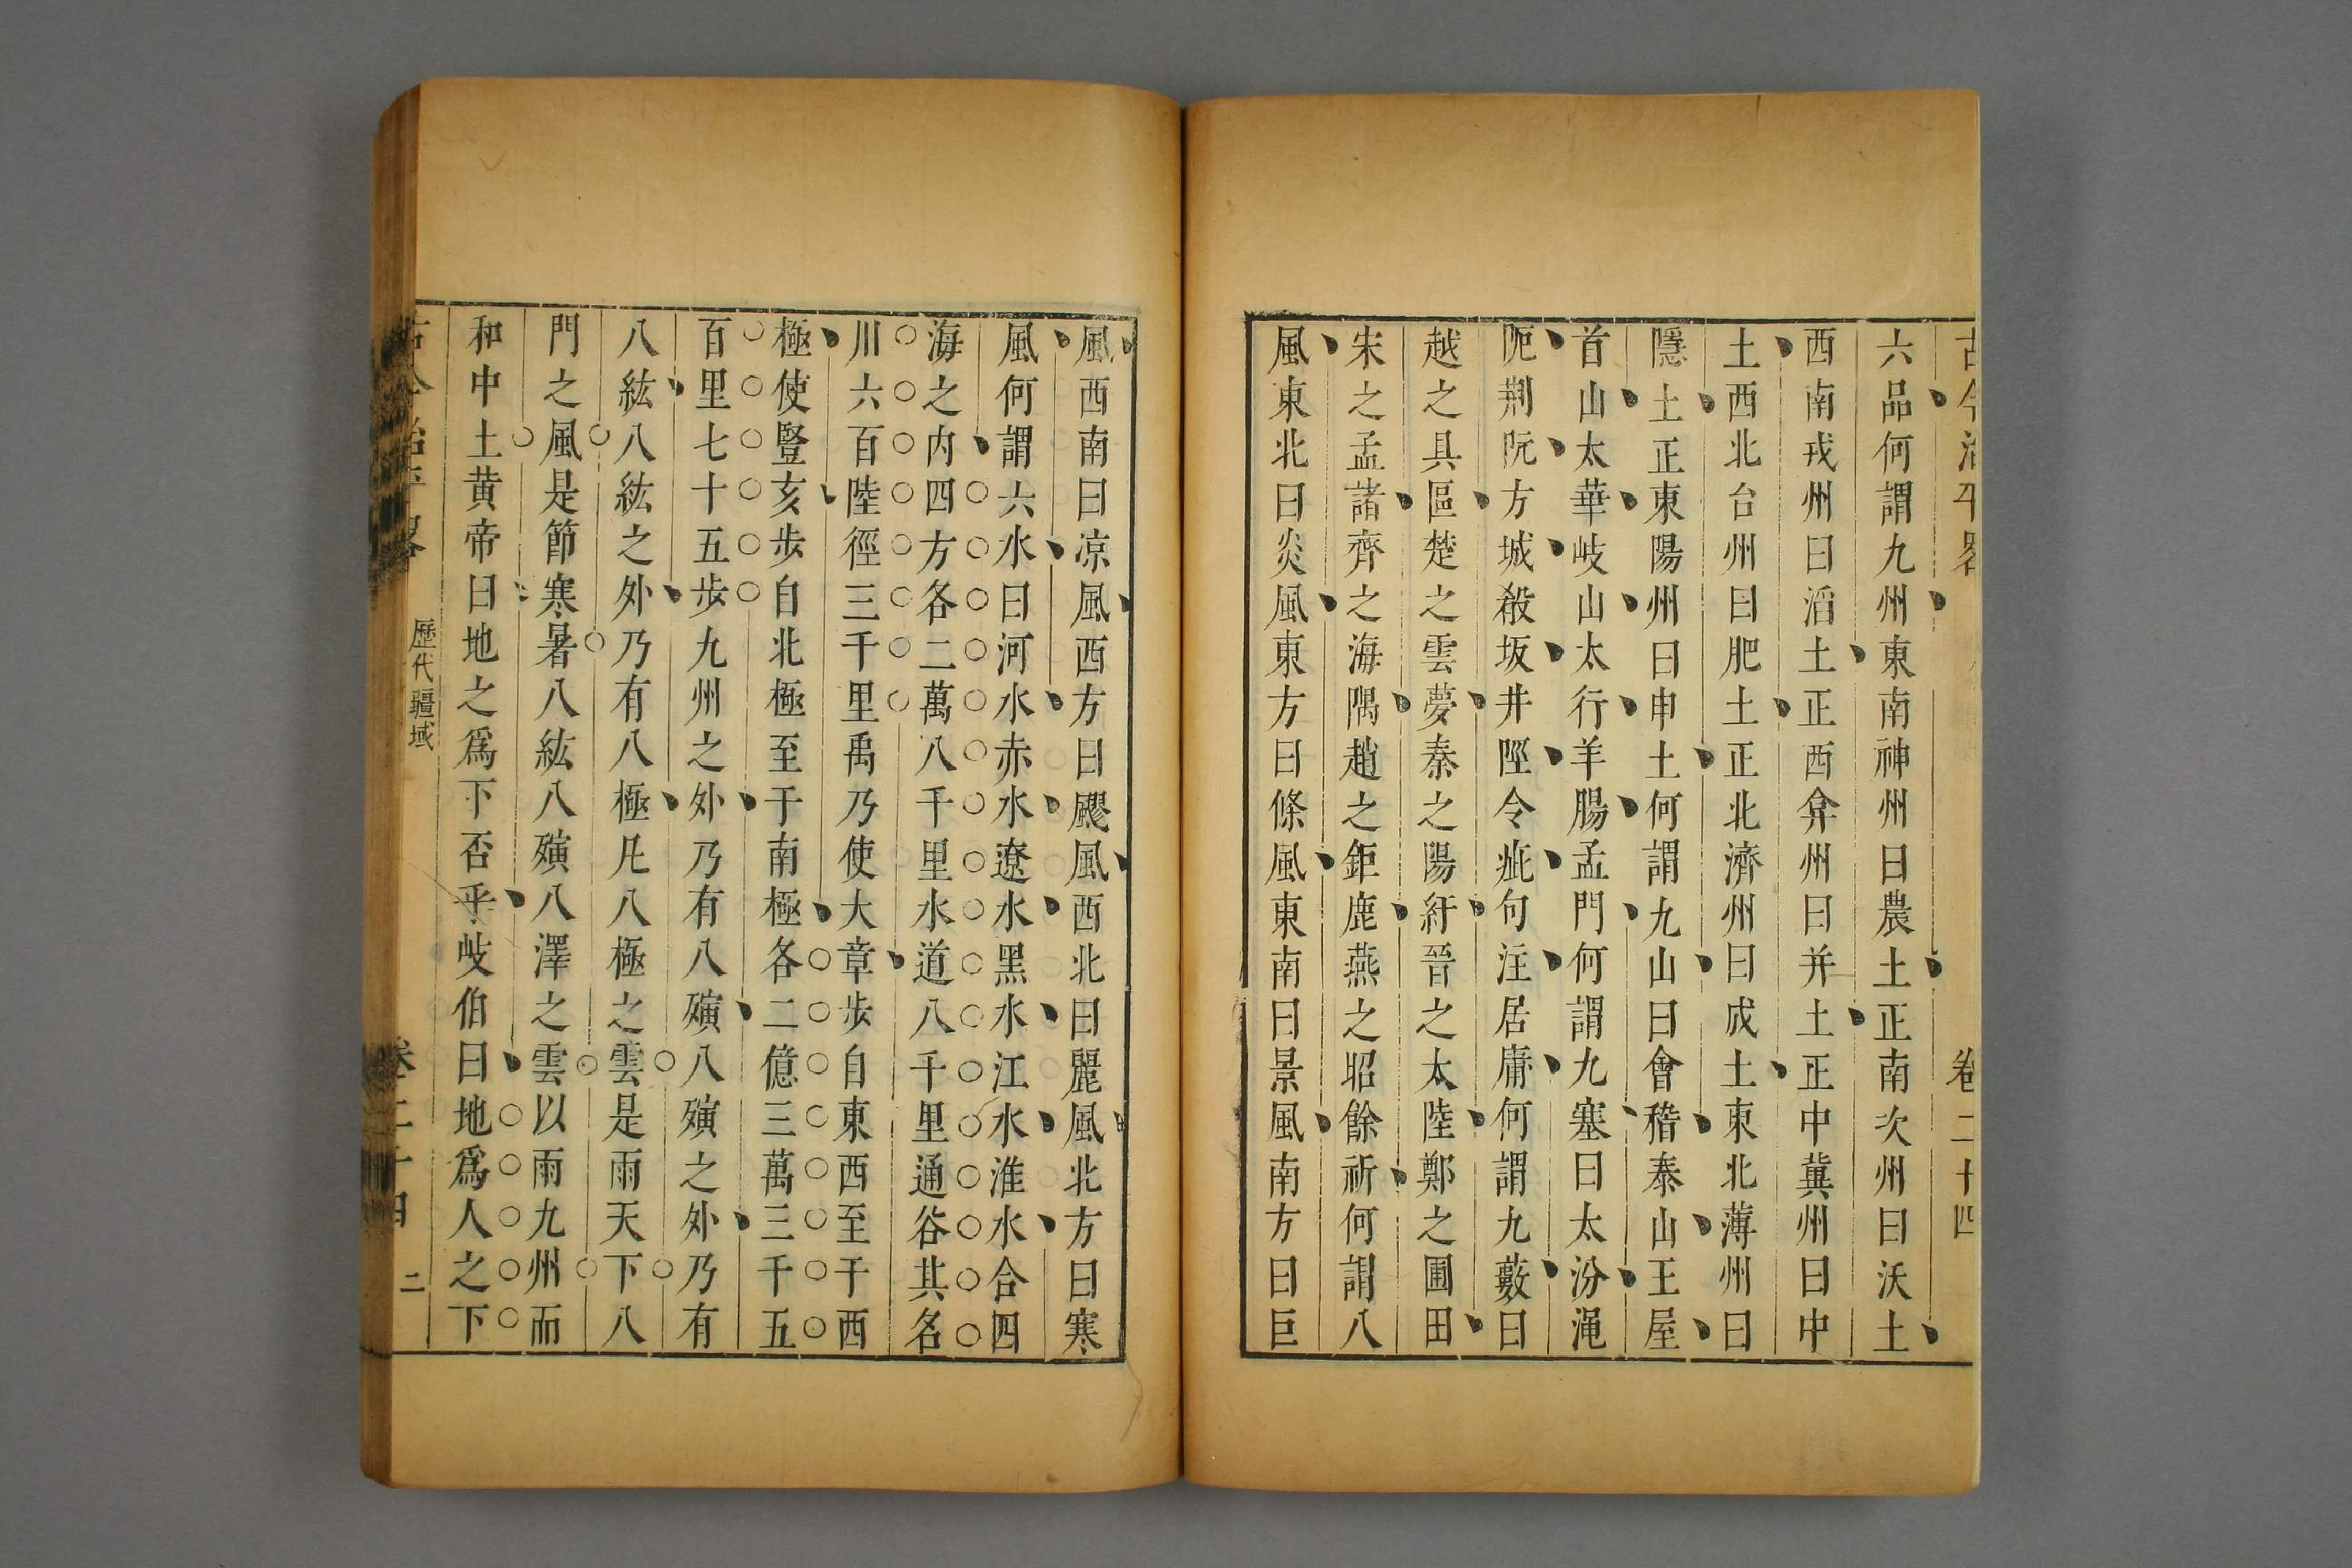 古今治平畧 卷二十四
六品何謂九州東南神州曰農土正南次州曰沃土
西南戎州曰滔土正西弇州曰并土正中冀州曰中
土西北台州曰肥土正北濟州曰成土東北薄州曰
隱土正東陽州曰申土何謂九山曰會稽泰山王屋
首山太華岐山太行羊腸孟門何謂九塞曰太汾澠
阨荆阮方城殽坂井陘令疵句注居庸何謂九藪曰
越之具區楚之雲夢秦之陽紆晉之太陸鄭之圃田
宋之孟諸齊之海隅趙之鉅鹿燕之昭餘祈何謂八
風東北曰炎風東方曰條風東南曰景風南方曰巨
風西南曰凉風西方曰飂風西北曰麗風北方曰寒
風何謂六水曰河水赤水遼水黑水江水淮水合四
海之内四方各二萬八千里水道八千里通谷其名
川六百陸徑三千里禹乃使大章步自東西至于西
極使豎亥步自北極至于南極各二億三萬三千五
百里七十五步九州之外乃有八殥八殥之外乃有
八紘八紘之外乃有八極凡八極之雲是雨天下八
門之風是節寒暑八紘八殥八澤之雲以雨九州而
和中土黄帝曰地之爲下否乎岐伯曰地爲人之下
古今治平畧 歷代疆域 卷二十四 二